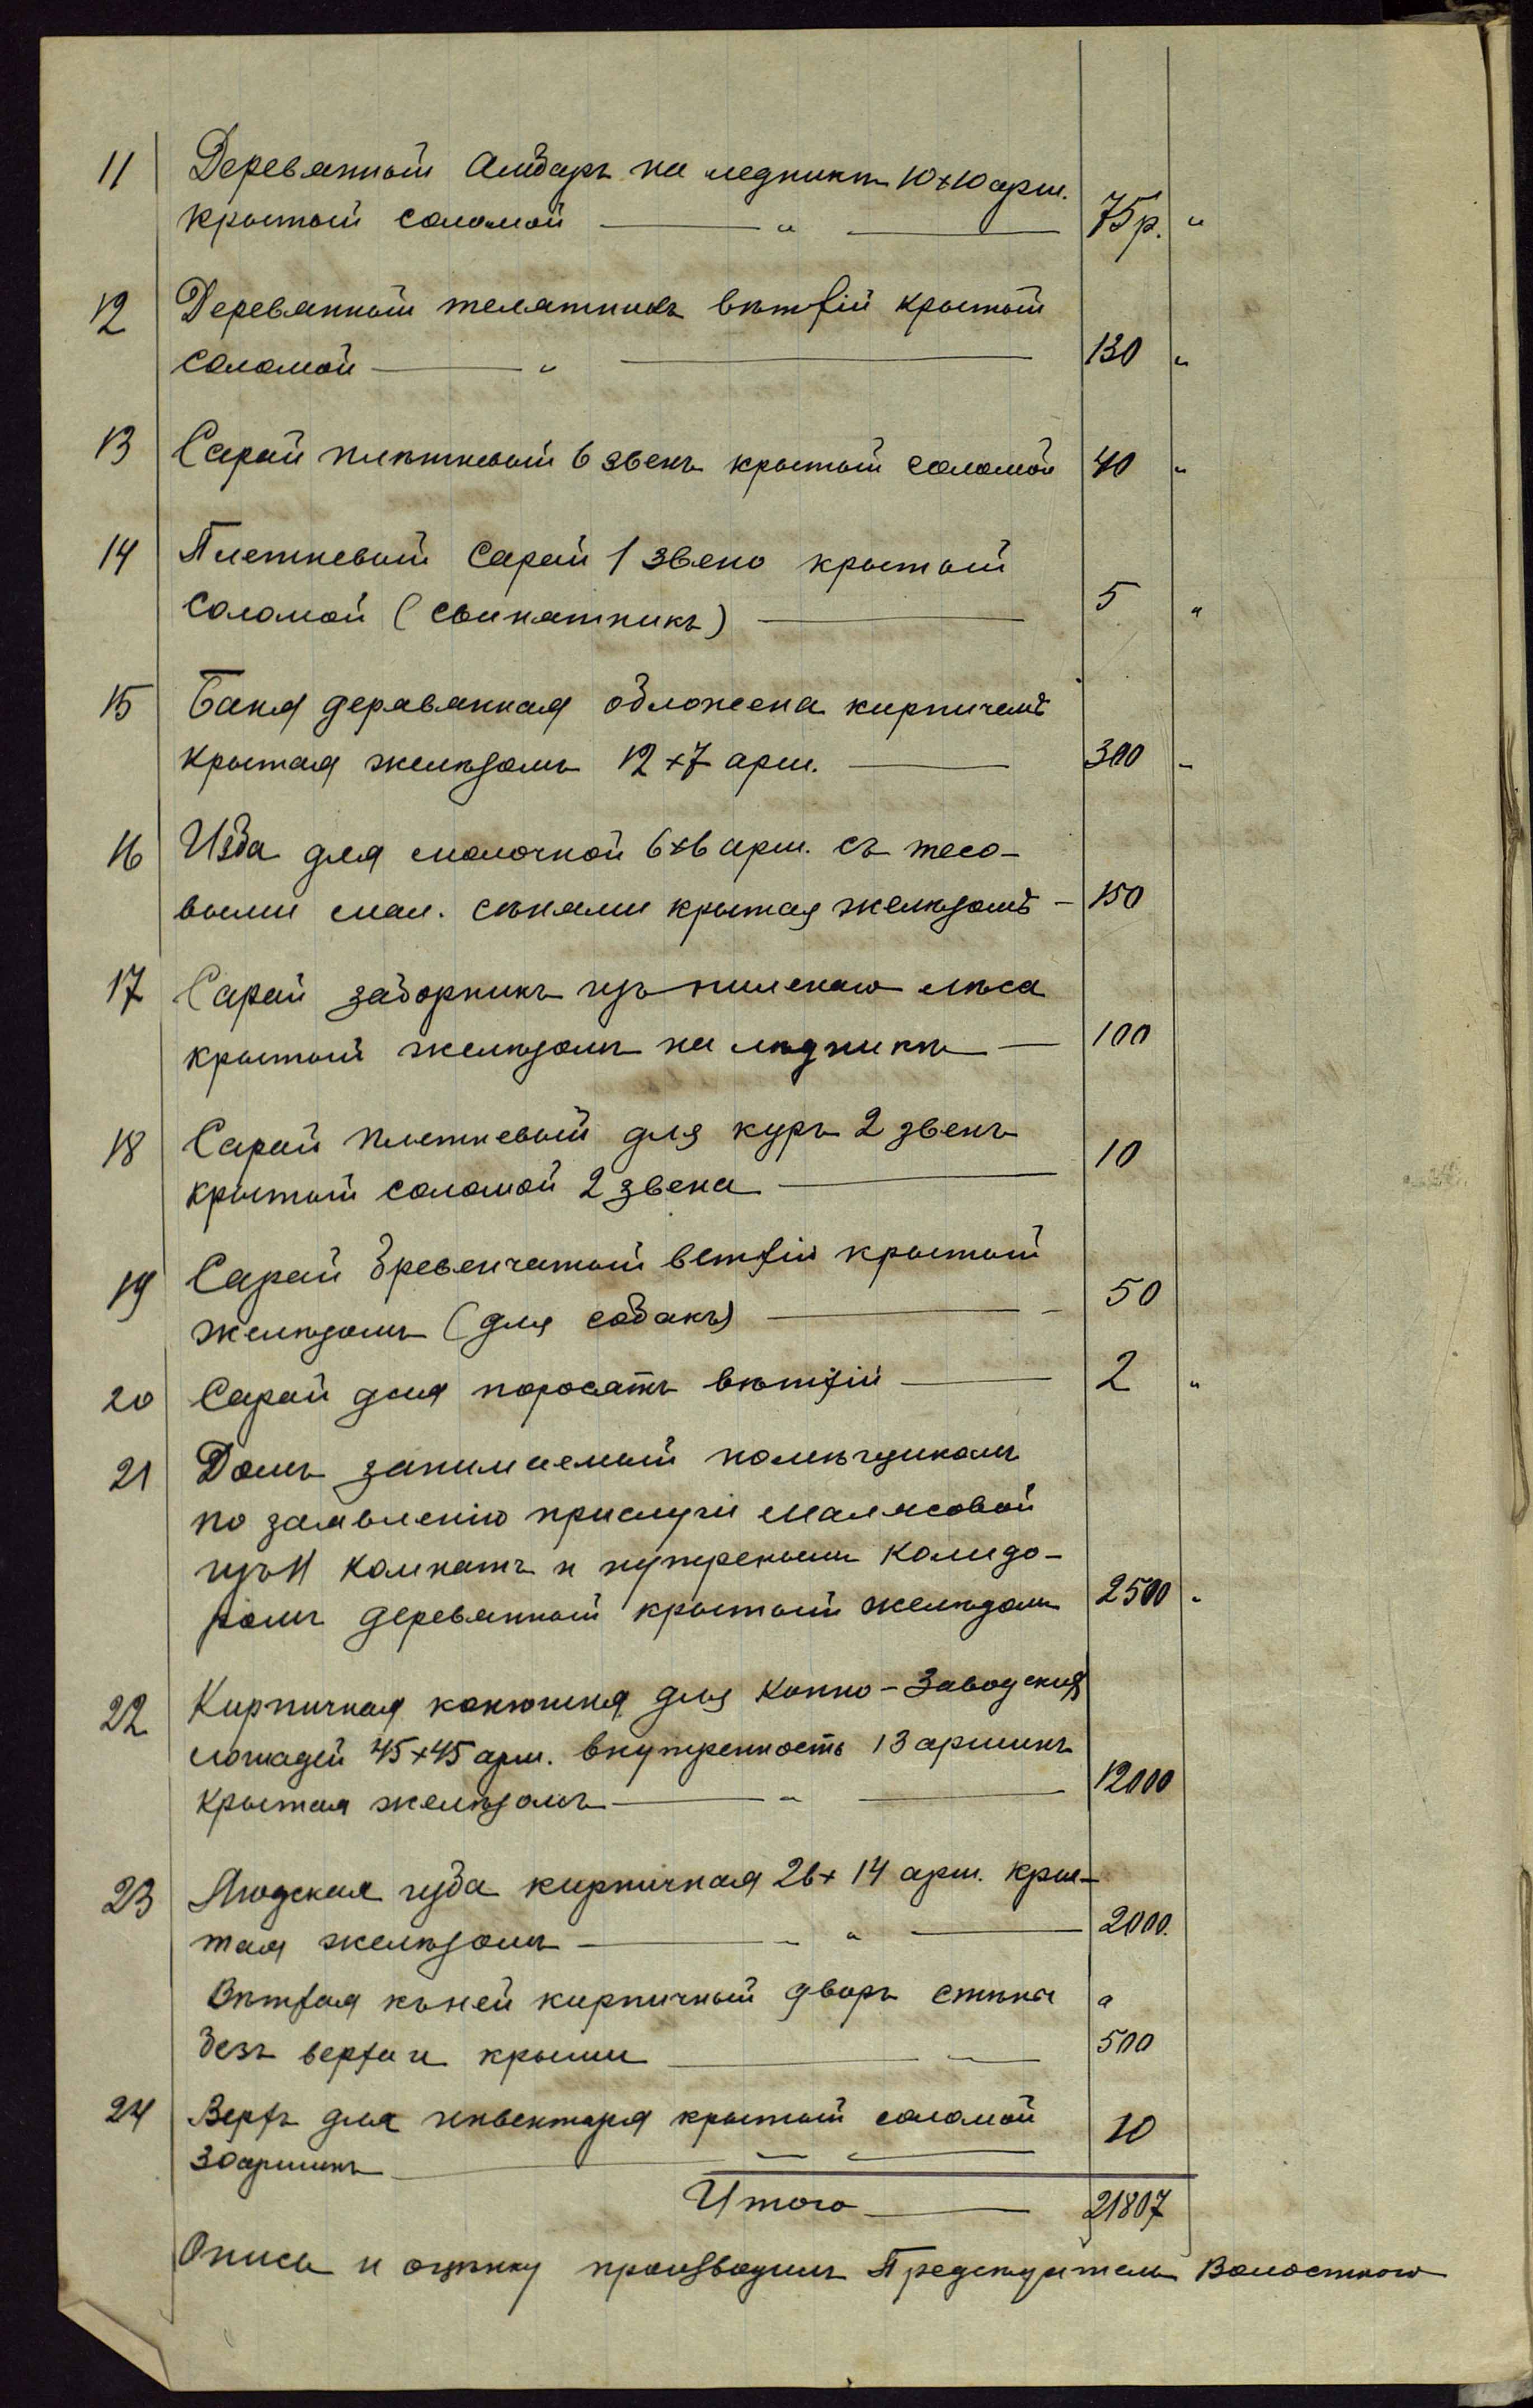 11 Деревянный амбаръ на ледникъ 10×10 арш.
крытый соломой — " — 75 р. "
12 Деревянный телятникъ вѣтхій крытый
соломой — " — 130 "
13 Сарай плѣтневый 6 звенъ крытый соломой 40 "
14 Плетневый сарай 1 звено крытый
соломой (свинятникъ) — 5 "
15 Баня деравянная обложена кирпичемъ
крытая желѣзомъ 12×7 арш. — 300 "
16 Изба для молочной 6×6 арш. съ тесо-
выми мал. сѣнями крытая желѣзомъ — 150
17 Сарай заборникъ изъ пиленаго лѣса
крытый желѣзомъ на лѣдникѣ — 100
18 Сарай плетневый для куръ 2 звенъ
крытый соломой 2 звена — 10
19 Сарай бревенчатый ветхій крытый
желѣзомъ (для собакъ) — 50
20 Сарай для поросятъ вѣтхій — 2 "
21 Домъ занимаемый помѣщикомъ
по заявленію прислуги Малясовой
изъ 11 комнатъ и нутренымъ колидо-
ромъ деревянный крытый желѣзомъ 2500 "
22 Кирпичная конюшня для Конно-Заводскихъ
лошадей 45×45 арш. внутренность 13 аршинъ
крытая желѣзомъ — " — 12000
23 Людская изба кирпичная 26×14 арш. кры-
тая желѣзомъ — " — 2000.
Вѣтхая къ ней кирпичный дворъ стѣны "
безъ верха и крыши — 500
24 Верхъ для инвентаря крытый соломой 10
30 аршинъ —
Итого — 21807
Опись и оцѣнку производилъ Предсѣдатель Волостного